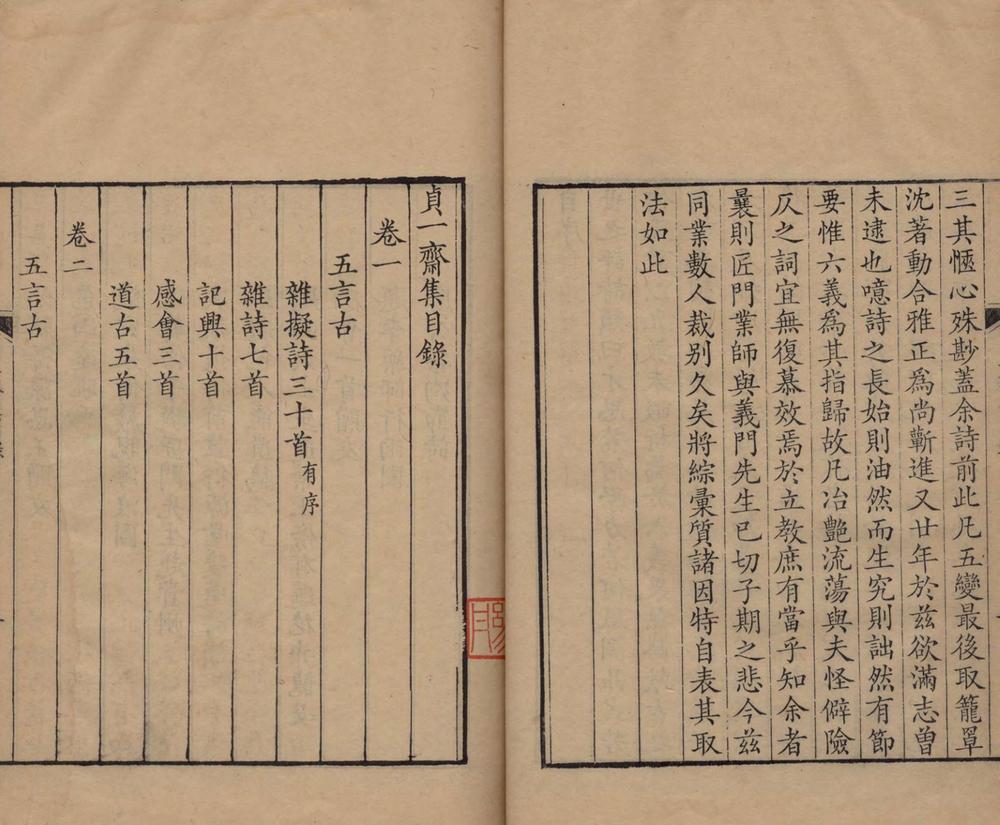 三其愜心殊尠蓋余詩前此凡五變最後取籠罩
沈著動合雅正爲尚蘄進又廿年於茲欲滿志曾
未逮也噫詩之長始則油然而生究則詘然有節
要惟六義爲其指歸故凡冶艷流蕩與夫怪僻險
仄之詞宜無復慕效焉於立教庶有當乎知余者
曩則匠門業師與義門先生已切子期之悲今茲
同業數人裁別久矣將綜彙質諸因特自表其取
法如此
貞一齋集目錄
卷一
五言古
雜擬詩三十首有序
雜詩七首
記興十首
感會三首
道古五首
卷二
五言古